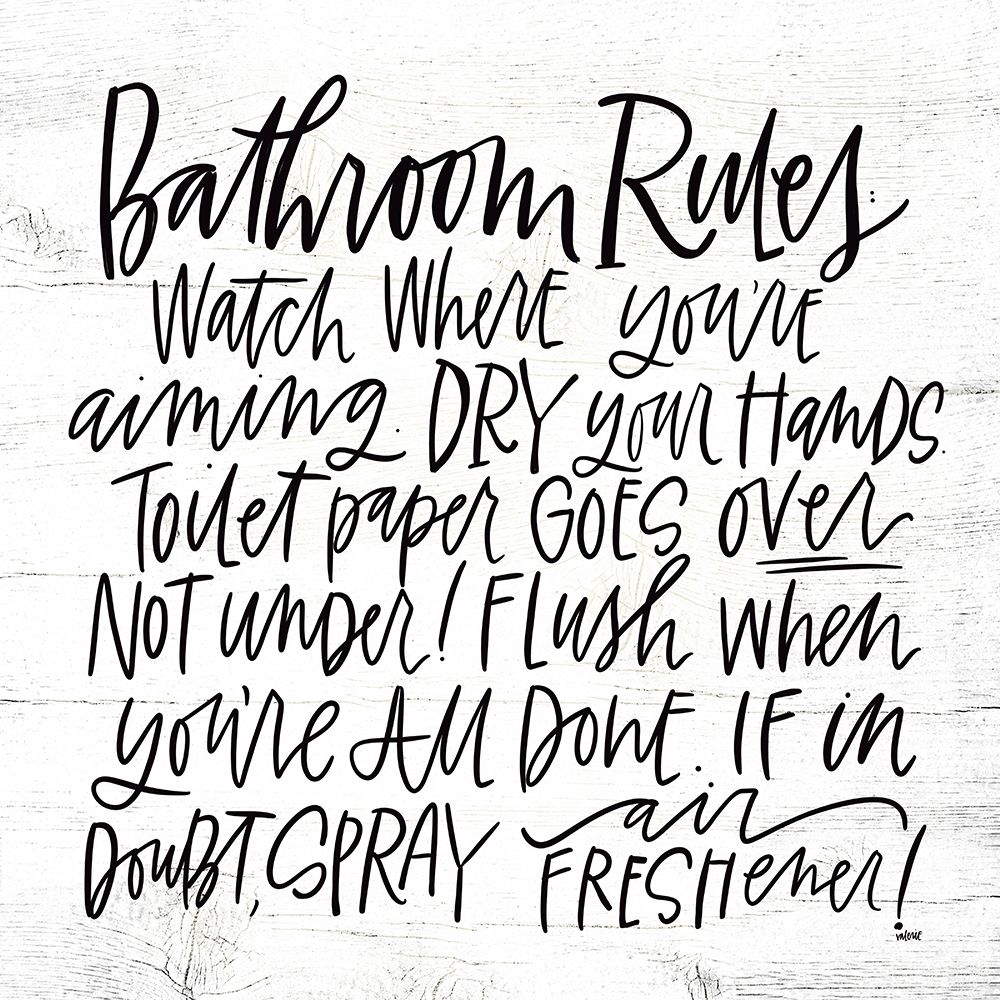 Bathroom Rules:
Watch Where you're
aiming. DRY your HanDS.
Toilet paper GOES over
NOT unDer! FLush when
you're All DonE. IF in
DouBT, SPRAY air
FRESHener!
valerie